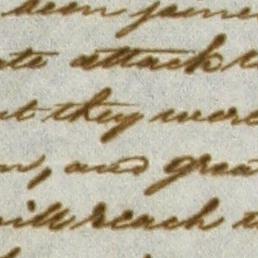 been joined
ate attack
t they were
, and grea
will reach